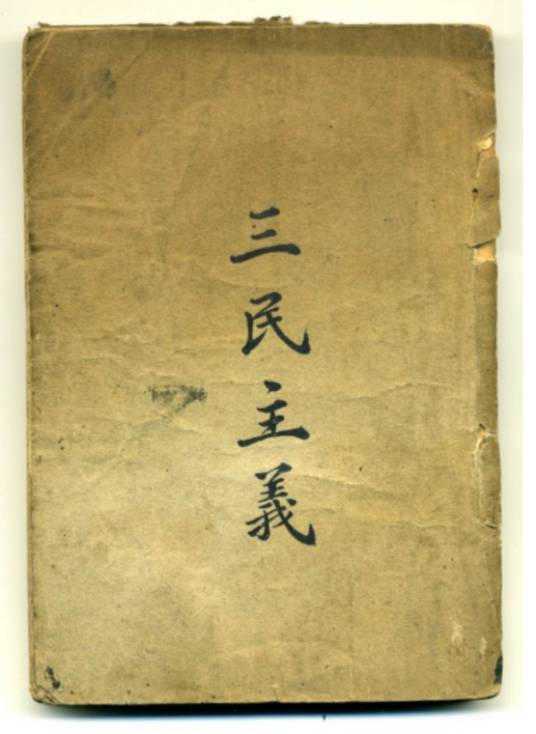 三民主義